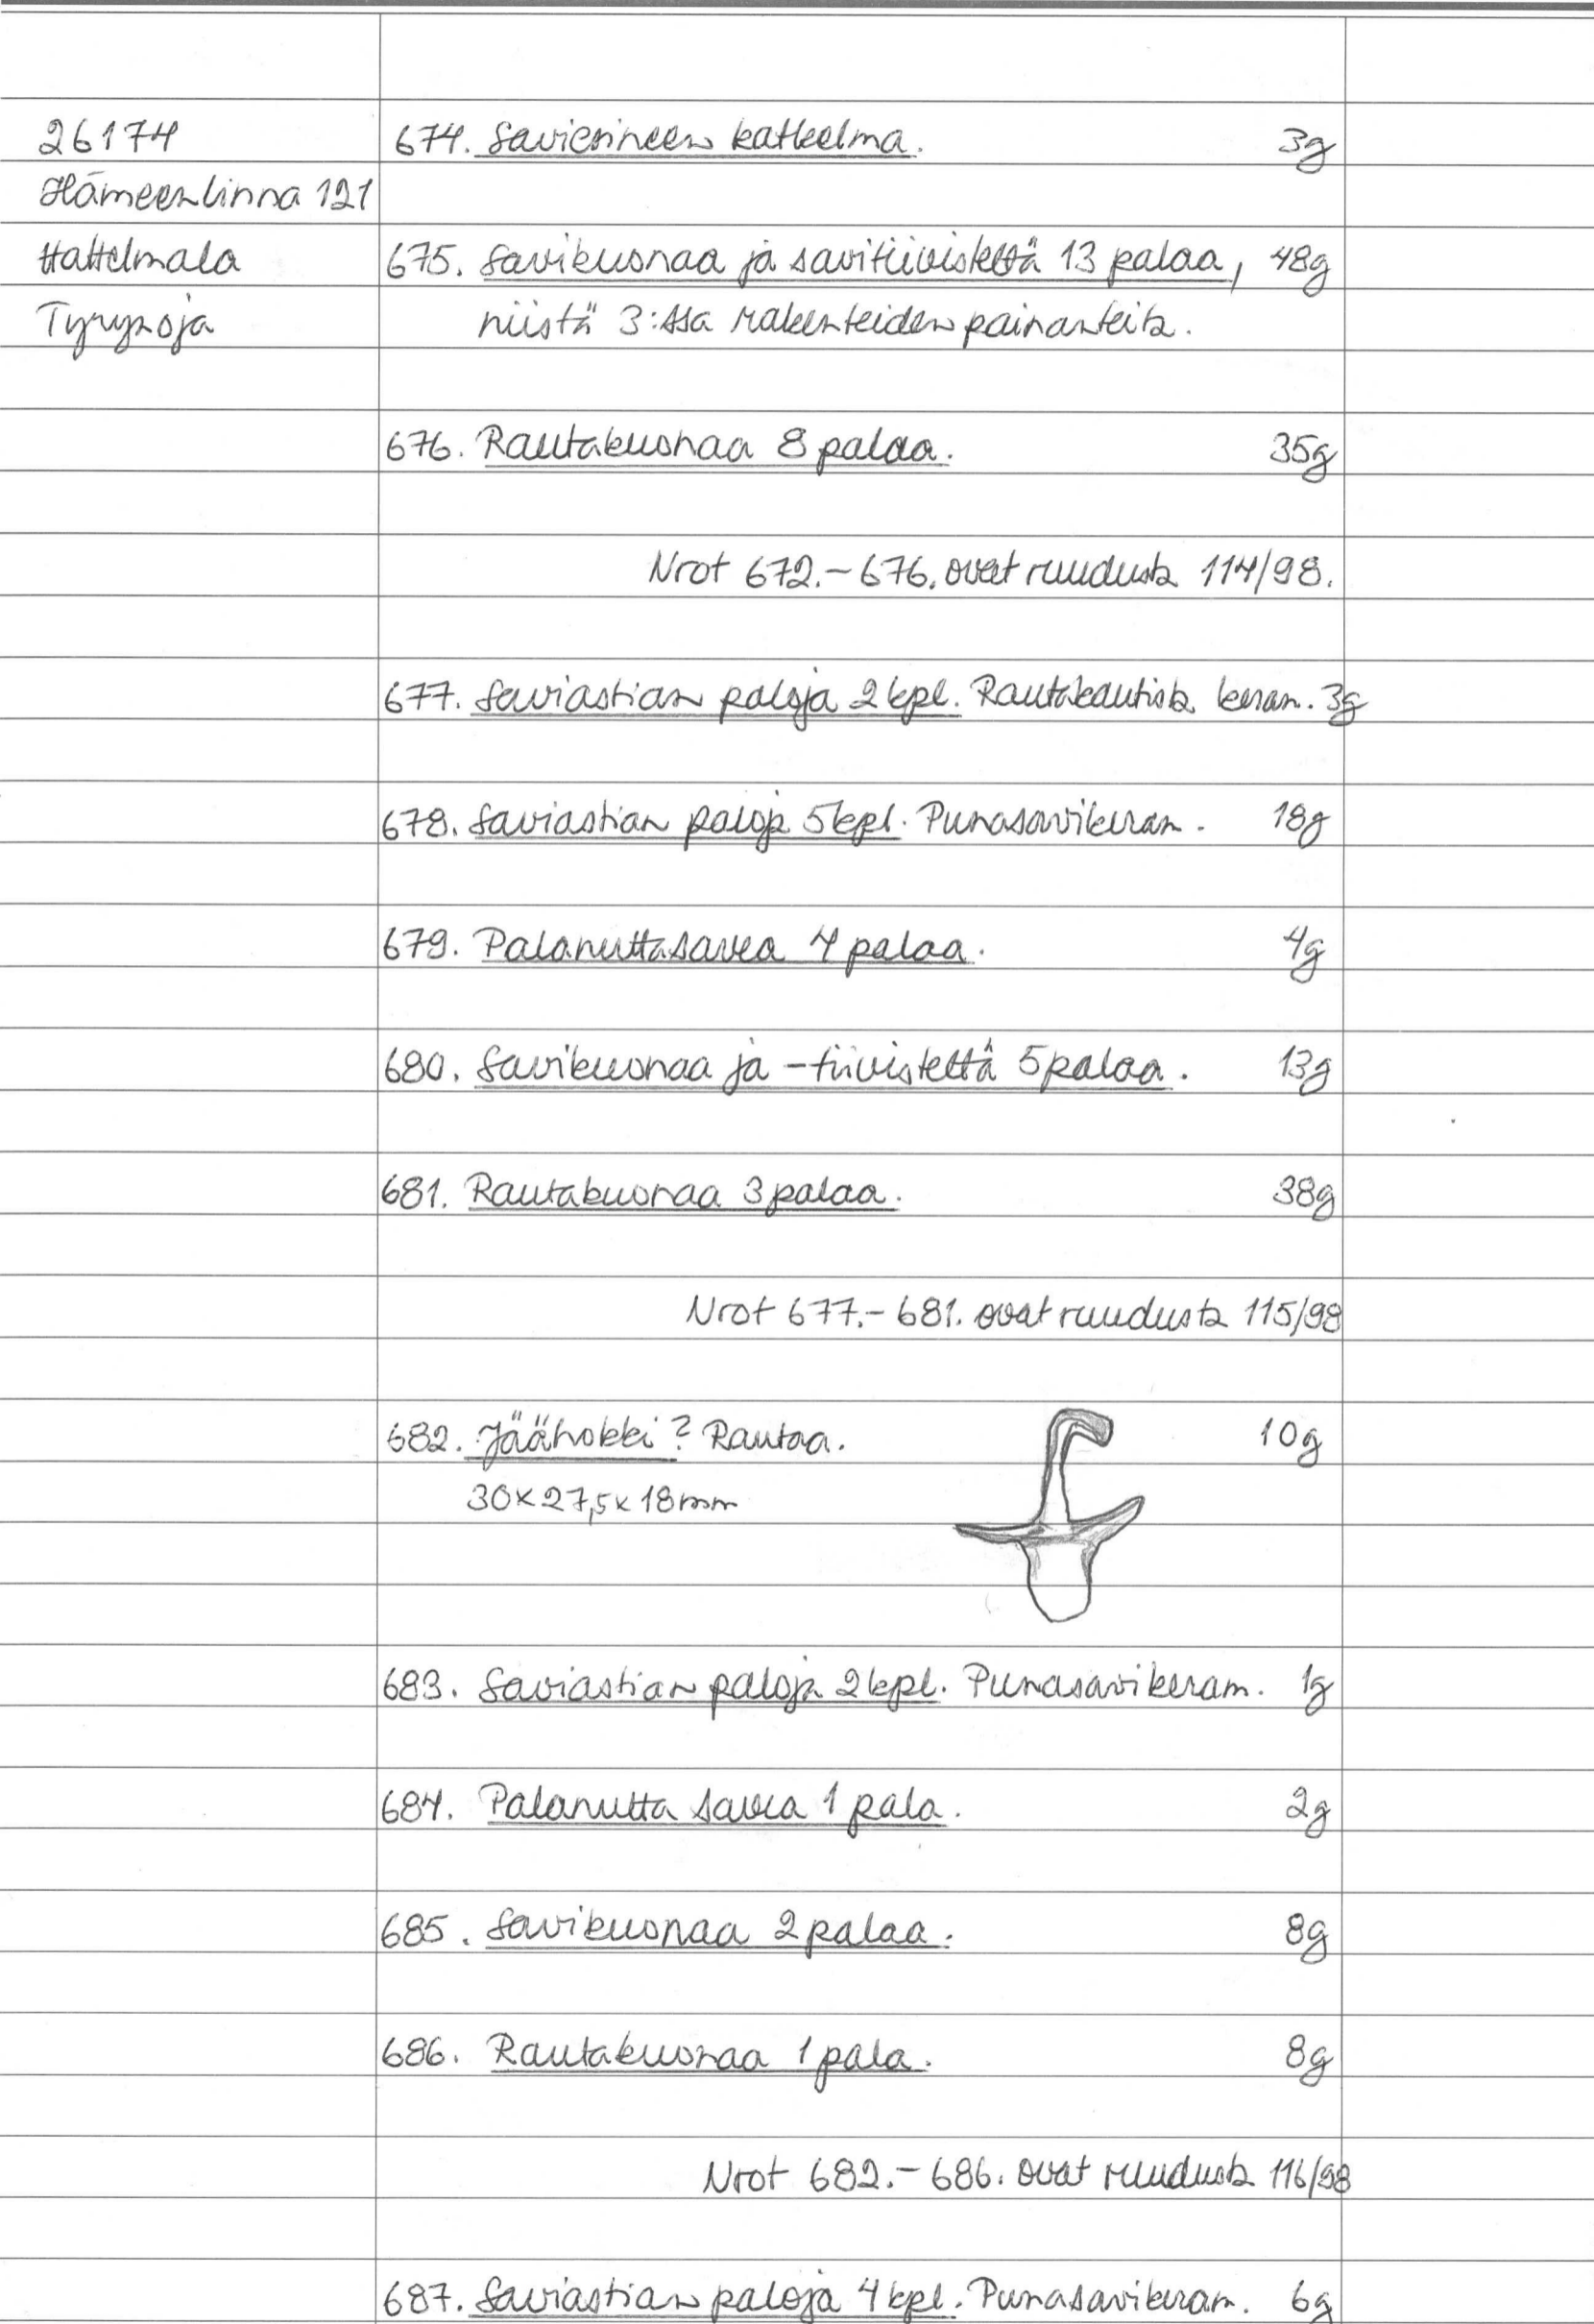 26174
674. Saviesineen katkelma. 3g
Hämeenlinna 121
Hattelmala
675. Savikuonaa ja savitiivistettä 13 palaa, 48g
Tyrynoja
niistä 3:ssa rakenteiden painanteita.
676. Rautakuonaa 8 palaa. 35g
Nrot 672.-676. ovat ruudusta 114/98.
677. Saviastian paloja 2 kpl. Rautakautista keram. 3g
678. Saviastian paloja 5 kpl. Punasavikeram. 18g
679. Palanutta savea 4 palaa. 4g
680. Savikuonaa ja -tiivistettä 5 palaa. 13g
681. Rautakuonaa 3 palaa. 38g
Nrot 677.-681. ovat ruudusta 115/98
682. Jäähokki? Rautaa. 10g
30x27,5x18mm
683. Saviastian paloja 2 kpl. Punasavikeram. 1g
684. Palanutta savea 1 pala. 2g
685. Savikuonaa 2 palaa. 8g
686. Rautakuonaa 1 pala. 8g
Nrot 682.-686. ovat ruudusta 116/98
687. Saviastian paloja 4 kpl. Punasavikeram. 6g